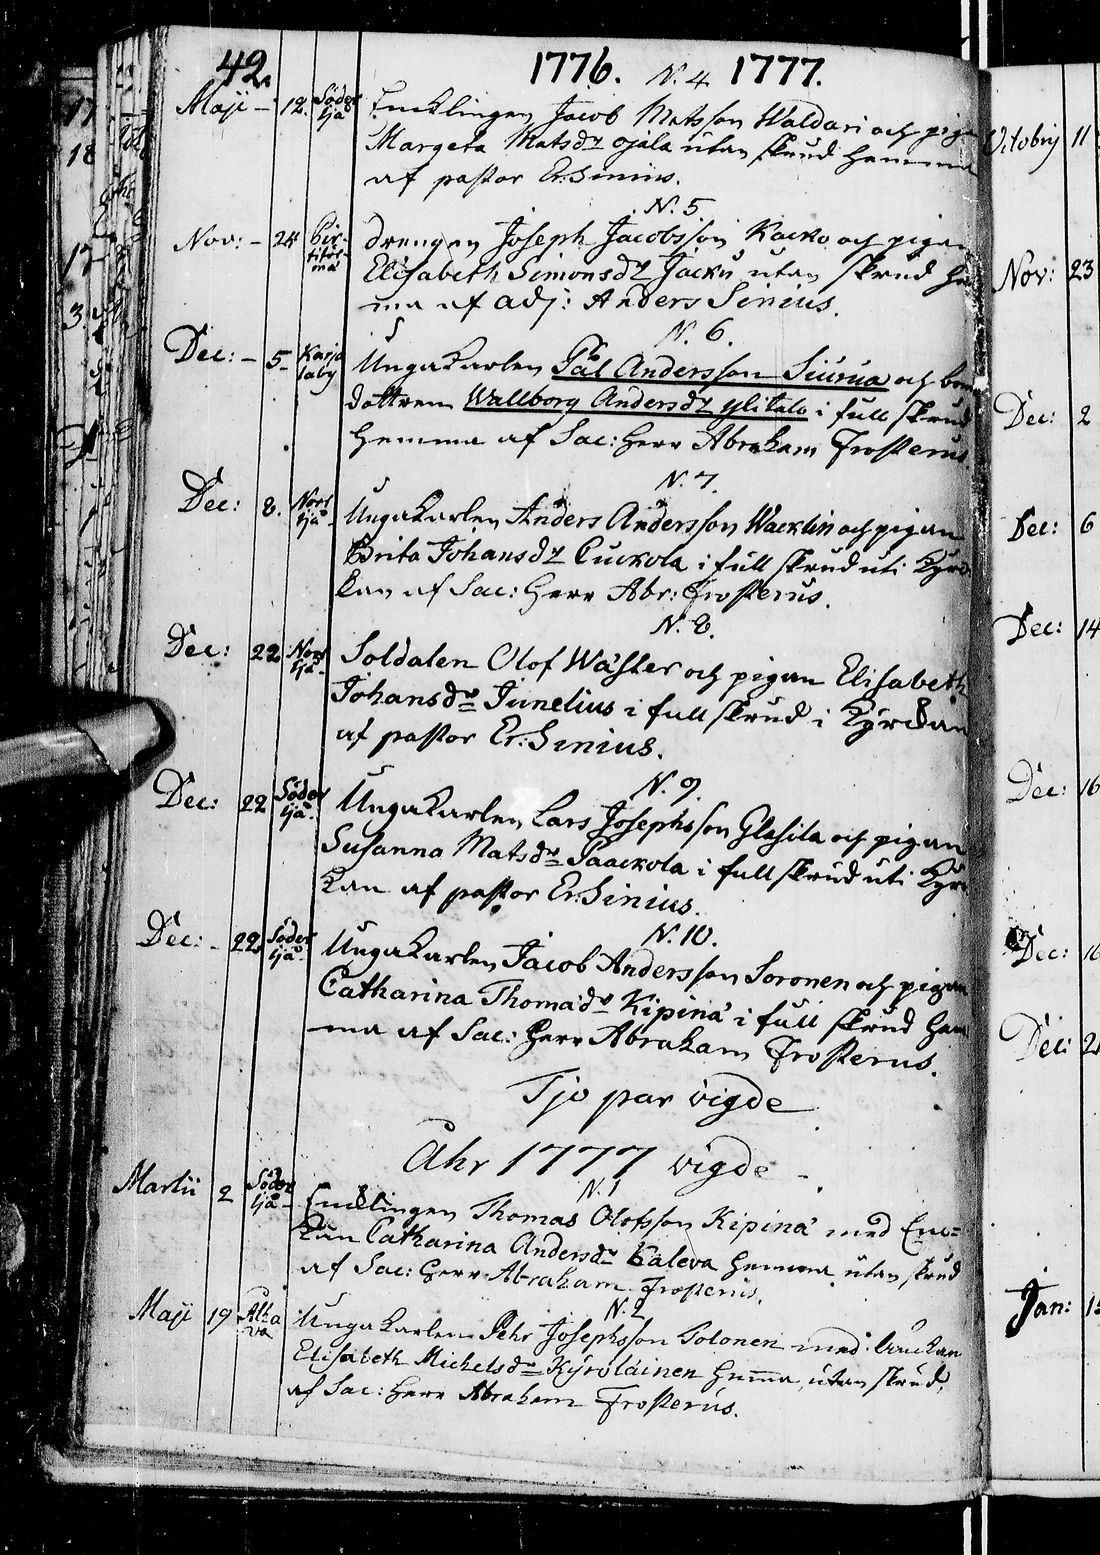 42. 1776. N. 4 1777.
Maji - 12. Söder tjä Encklingen Jacob Matsson Waldari och pigan
Margeta Matsdr ojala utan skrud hemma
af pastor Er. Sinius.
N. 5
Nov: - 24 drengen Joseph Jacobsson Kacko och pigan
Elisabeth Simonsdr Jacku utan skrud he
ma af adj: Anders Sinius.
N. 6.
Dec: - 5 Karja laby Ungakarlen Pål Andersson Siurua och bon
dottren Wallborg Andersdr ylitalo i full skrud
hemma af Sac: Herr Abraham Frosterus.
N. 7.
Dec: 8. Norr tjä Ungakarlen Anders Andersson Wacklin och pigan
Brita Johansdr Cuckola i full skrud uti Kyr
kan af Sac: Herr Abr: Frosterus.
N. 8.
Dec: 22 Norr tjä Soldaten Olof Wäster och pigan Elisabeth
Johansdr Junelius i full skrud i Kyrckan
af pastor Er. Sinius.
N. 9
Dec: 22 Söder tjä. Ungakarlen Lars Josephsson Glasila och pigan
Susanna Matsdr Paackola i full skrud uti Kyr
kan af pastor Er. Sinius.
N. 10.
Dec: - 22. Söder tjä. Ungakarlen Jacob Andersson Soronen och pigan
Catharina Thomædr Kipinä i full skrud hem
ma af Sac: Herr Abraham Frosterus.
Tjo par vigde
Åhr 1777 vigde -
N. 1
Martii 2 Söder tjä Encklingen Thomas Olofsson Kipinä med Enc=
kan Catharina Andersdr Kaleva hemma utan skrud
af Sac: Herr Abraham Frosterus.
N. 2
Maji 19 Alha va Ungakarlen Pehr Josephsson Polonen med
Elisabeth Michelsdr Kyröläinen hemma, utan skrud,
af Sac: Herr Abraham Frosterus.
Octobrij 11
Nov: 23
Dec: 2
Dec: 6
Dec: 14
Dec: 16
Dec: 16
Dec: 2
Jan: 1